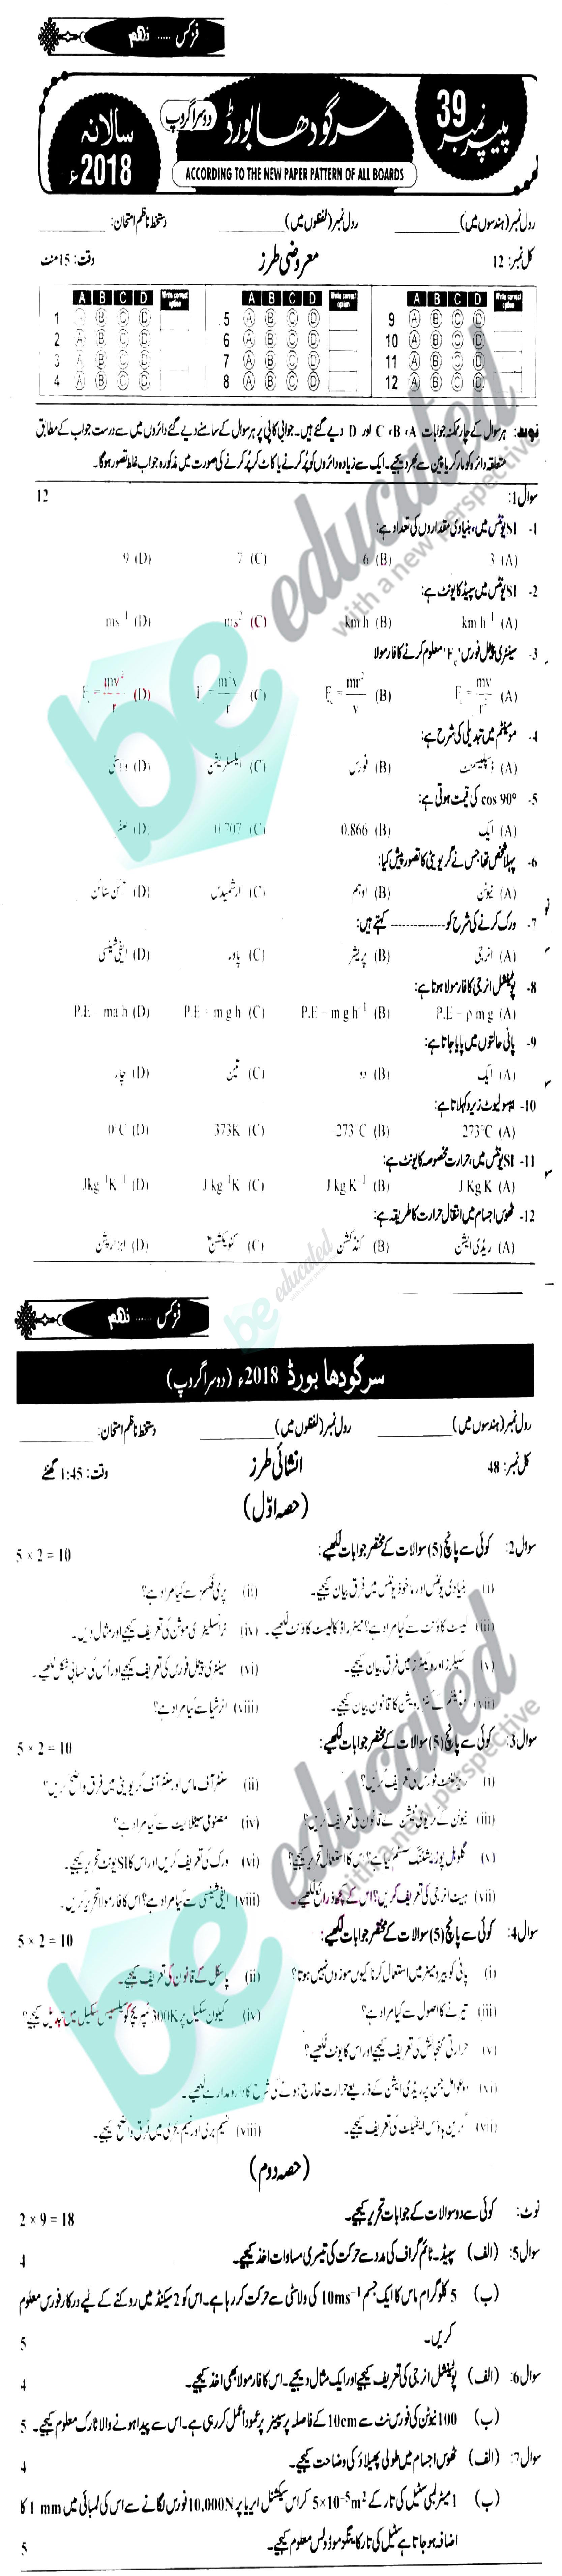 فزکس ..... نہم
پیپر نمبر 39
سرگودھا بورڈ
دوسرا گروپ
سالانہ 2018ء
ACCORDING TO THE NEW PAPER PATTERN OF ALL BOARDS
رول نمبر (ہندسوں میں) ________ رول نمبر (لفظوں میں) ________ دستخط ناظم امتحان: ________
کل نمبر: 12 معروضی طرز وقت: 15 منٹ
A B C D Write correct option A B C D Write correct option A B C D Write correct option
1 A B C D 5 A B C D 9 A B C D
2 A B C D 6 A B C D 10 A B C D
3 A B C D 7 A B C D 11 A B C D
4 A B C D 8 A B C D 12 A B C D
نوٹ: ہر سوال کے چار ممکنہ جوابات A، B، C اور D دیے گئے ہیں۔ جوابی کاپی پر ہر سوال کے سامنے دیے گئے دائروں میں سے درست جواب کے مطابق
متعلقہ دائرہ کو مارکر یا پین سے بھر دیجیے۔ ایک سے زیادہ دائروں کو پُر کرنے یا کاٹ کر پُر کرنے کی صورت میں مذکورہ جواب غلط تصور ہوگا۔
سوال1: 12
1- SI یونٹس میں، بنیادی مقداروں کی تعداد ہے:
(A) 3 (B) 6 (C) 7 (D) 9
2- SI یونٹس میں سپیڈ کا یونٹ ہے:
(A) km h⁻¹ (B) km h (C) ms² (D) ms⁻¹
3- سینٹری پیٹل فورس 'Fc' معلوم کرنے کا فارمولا
(A) Fc = mv/r² (B) Fc = mr²/v (C) Fc = m²v/r (D) Fc = mv²/r
4- مومینٹم میں تبدیلی کی شرح ہے:
(A) ڈسپلیسمنٹ (B) فورس (C) ایکسلریشن (D) ولاسٹی
5- cos 90° کی قیمت ہوتی ہے:
(A) ایک (B) 0.866 (C) 0.707 (D) صفر
6- پہلا شخص تھا جس نے گریویٹی کا تصور پیش کیا:
(A) نیوٹن (B) اوہم (C) ارشمیدس (D) آئن سٹائن
7- ورک کرنے کی شرح کو ------------- کہتے ہیں:
(A) انرجی (B) پریشر (C) پاور (D) ایفی شینسی
8- پوٹینشل انرجی کا فارمولا ہوتا ہے:
(A) P.E = ρ m g (B) P.E = m g h⁻¹ (C) P.E = m g h (D) P.E = ma h
9- پانی حالتوں میں پایا جاتا ہے:
(A) ایک (B) دو (C) تین (D) چار
10- ایبسولیوٹ زیرو کہلاتا ہے:
(A) 273°C (B) -273 C (C) 373K (D) 0 C
11- SI یونٹس میں، حرارت مخصوصہ کا یونٹ ہے:
(A) J Kg K (B) J kg K⁻¹ (C) J kg⁻¹K (D) Jkg⁻¹K⁻¹
12- ٹھوس اجسام میں انتقال حرارت کا طریقہ ہے:
(A) ریڈی ایشن (B) کنڈکشن (C) کنویکشن (D) ابزارپشن
be educated
فزکس ..... نہم
سرگودھا بورڈ 2018ء (دوسرا گروپ)
رول نمبر (ہندسوں میں) ________ رول نمبر (لفظوں میں) ________ دستخط ناظم امتحان: ________
کل نمبر: 48 انشائی طرز وقت: 1:45 گھنٹے
(حصہ اوّل)
سوال2: کوئی سے پانچ (5) سوالات کے مختصر جوابات لکھیے: 5 × 2 = 10
(i) بنیادی یونٹس اور ماخوذ یونٹس میں فرق بیان کیجیے۔ (ii) پری فکسز سے کیا مراد ہے؟
(iii) لیسٹ کاؤنٹ سے کیا مراد ہے؟ میٹر راڈ کا لیسٹ کاؤنٹ لکھیے۔ (iv) ٹرانسلیٹری موشن کی تعریف کیجیے اور مثال دیں۔
(v) سکیلرز اور ویکٹرز میں فرق بیان کیجیے۔ (vi) سینٹری پیٹل فورس کی تعریف کیجیے اور اُس کی حسابی شکل لکھیے۔
(vii) مومینٹم کے کنزرویشن کا قانون بیان کیجیے۔ (viii) انرشیا سے کیا مراد ہے؟
سوال3: کوئی سے پانچ (5) سوالات کے مختصر جوابات لکھیے: 5 × 2 = 10
(i) ریزلٹنٹ فورس کی تعریف کریں؟ (ii) سنٹر آف ماس اور سنٹر آف گریویٹی میں فرق واضح کریں؟
(iii) نیوٹن کے گریوی ٹیشن کے قانون کی تعریف کریں؟ (iv) مصنوعی سیٹلائیٹ سے کیا مراد ہے؟
(v) گلوبل پوزیشننگ سسٹم کیا ہے؟ اس کا استعمال تحریر کیجیے۔ (vi) ورک کی تعریف کریں اور اس کا SI یونٹ تحریر کیجیے۔
(vii) ہیٹ انرجی کی تعریف کریں؟ اس کے کچھ ذرائع لکھیے۔ (viii) ایفی شینسی سے کیا مراد ہے؟ اس کا فارمولا تحریر کریں۔
سوال4: کوئی سے پانچ (5) سوالات کے مختصر جوابات لکھیے: 5 × 2 = 10
(i) پانی کو بیرومیٹر میں استعمال کرنا کیوں موزوں نہیں ہوتا؟ (ii) پاسکل کے قانون کی تعریف کیجیے۔
(iii) تیرنے کا اصول سے کیا مراد ہے؟ (iv) کیلون سکیل پر 300K ٹمپریچر کو سیلسیس سکیل میں تبدیل کیجیے؟
(v) حرارتی گنجائش کی تعریف کیجیے اور اس کا یونٹ لکھیے؟
(vi) دو عوامل جن پر ریڈی ایشن کے ذریعے حرارت خارج ہونے کی شرح کا دارومدار ہے لکھیے۔
(vii) گرین ہاؤس ایفیکٹ کی تعریف کیجیے۔ (viii) نسیم بری اور نسیم بحری میں فرق واضح کیجیے۔
(حصہ دوم)
نوٹ: کوئی سے دو سوالات کے جوابات تحریر کیجیے۔ 2 × 9 = 18
سوال5: (الف) سپیڈ۔ ٹائم گراف کی مدد سے حرکت کی تیسری مساوات اخذ کیجیے۔ 4
(ب) 5 کلوگرام ماس کا ایک جسم 10ms⁻¹ کی ولاسٹی سے حرکت کر رہا ہے۔ اس کو 2 سیکنڈ میں روکنے کے لیے درکار فورس معلوم
کریں۔ 5
سوال6: (الف) پوٹینشل انرجی کی تعریف کیجیے اور ایک مثال دیجیے۔ اس کا فارمولا بھی اخذ کیجیے۔ 4
(ب) 100 نیوٹن کی فورس نٹ سے 10cm کے فاصلہ پر سپینر پر عموداً عمل کر رہی ہے۔ اس سے پیدا ہونے والا ٹارک معلوم کیجیے۔ 5
سوال7: (الف) ٹھوس اجسام میں طولی پھیلاؤ کی وضاحت کیجیے۔ 4
(ب) 1 میٹر لمبی سٹیل کی تار کے 5×10⁻⁵m² کراس سیکشنل ایریا پر 10,000N فورس لگانے سے اس کی لمبائی میں 1 mm کا
اضافہ ہو جاتا ہے سٹیل کی تار کا ینگز موڈولس معلوم کیجیے۔ 5
be educated
with a new perspective
be educated
with a new perspective